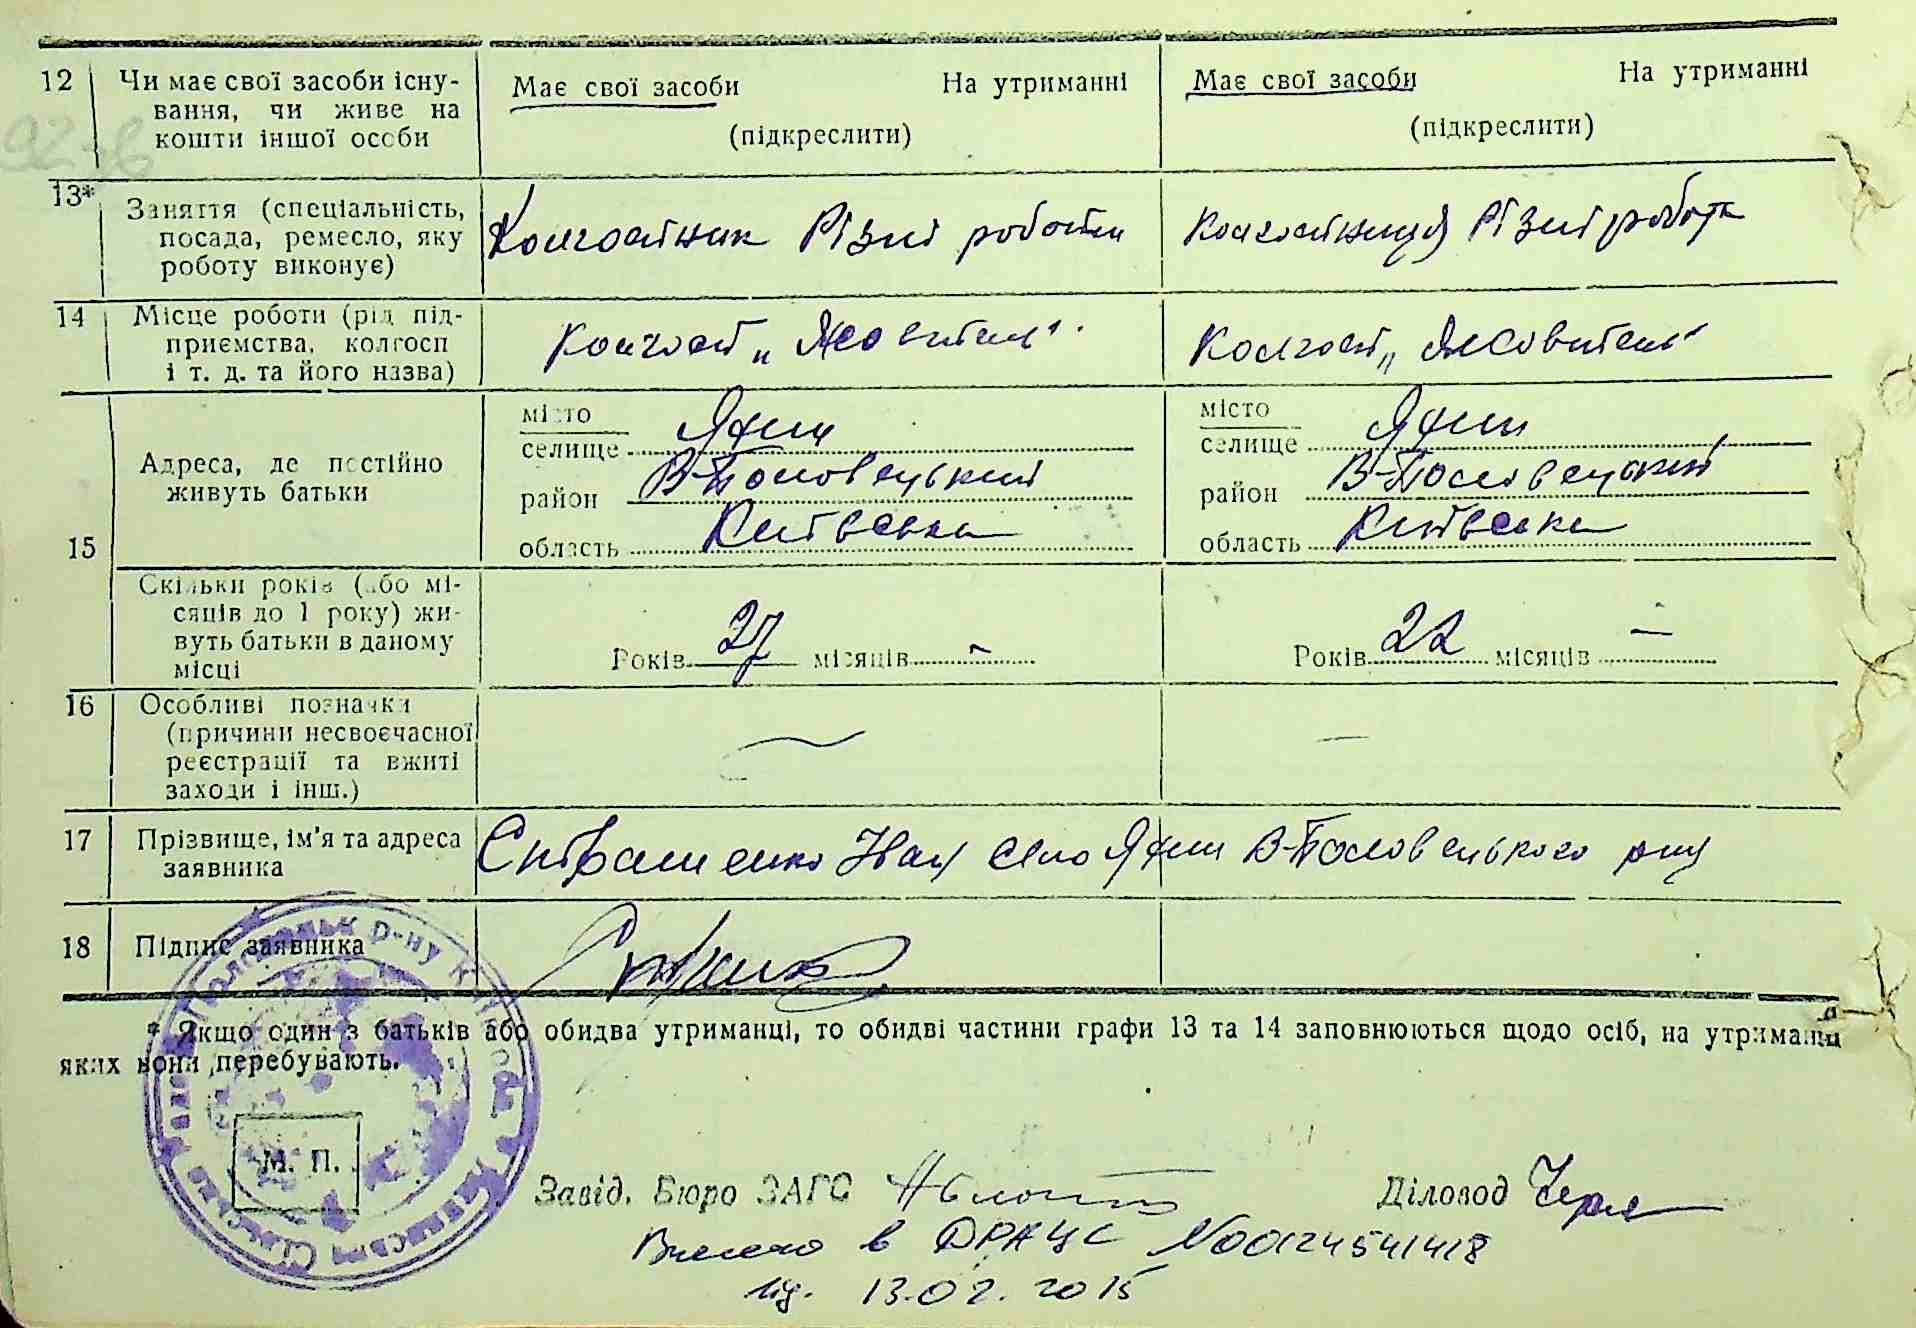 12 Чи має свої засоби існу-
вання, чи живе на
кошти іншої особи
Має свої засоби На утриманні
(підкреслити)
Має свої засоби На утриманні
(підкреслити)
13* Заняття (спеціальність,
посада, ремесло, яку
роботу виконує)
Колгоспник Різні роботи
Колгоспниця Різні роботи
14 Місце роботи (рід під-
приємства, колгосп
і т. д. та його назва)
Колгосп „Жовтень"
Колгосп „Жовтень"
15
Адреса, де постійно
живуть батьки
місто
селище Яхни
район В-Половецький
область Київська
місто
селище Яхни
район В-Половецький
область Київська
Скільки років (або мі-
сяців до 1 року) жи-
вуть батьки в даному
місці
Років 27 місяців –
Років 22 місяців –
16 Особливі позначки
(причини несвоєчасної
реєстрації та вжиті
заходи і інш.)
17 Прізвище, ім'я та адреса
заявника
Іван село Яхни В-Половецького р-ну
18 Підпис заявника
* Якщо один з батьків або обидва утриманці, то обидві частини графи 13 та 14 заповнюються щодо осіб, на утриманні
яких вони перебувають.
М. П.
Завід. Бюро ЗАГС
Діловод
Внесено в ДРАЦС №00124541418
від. 13.02.2015